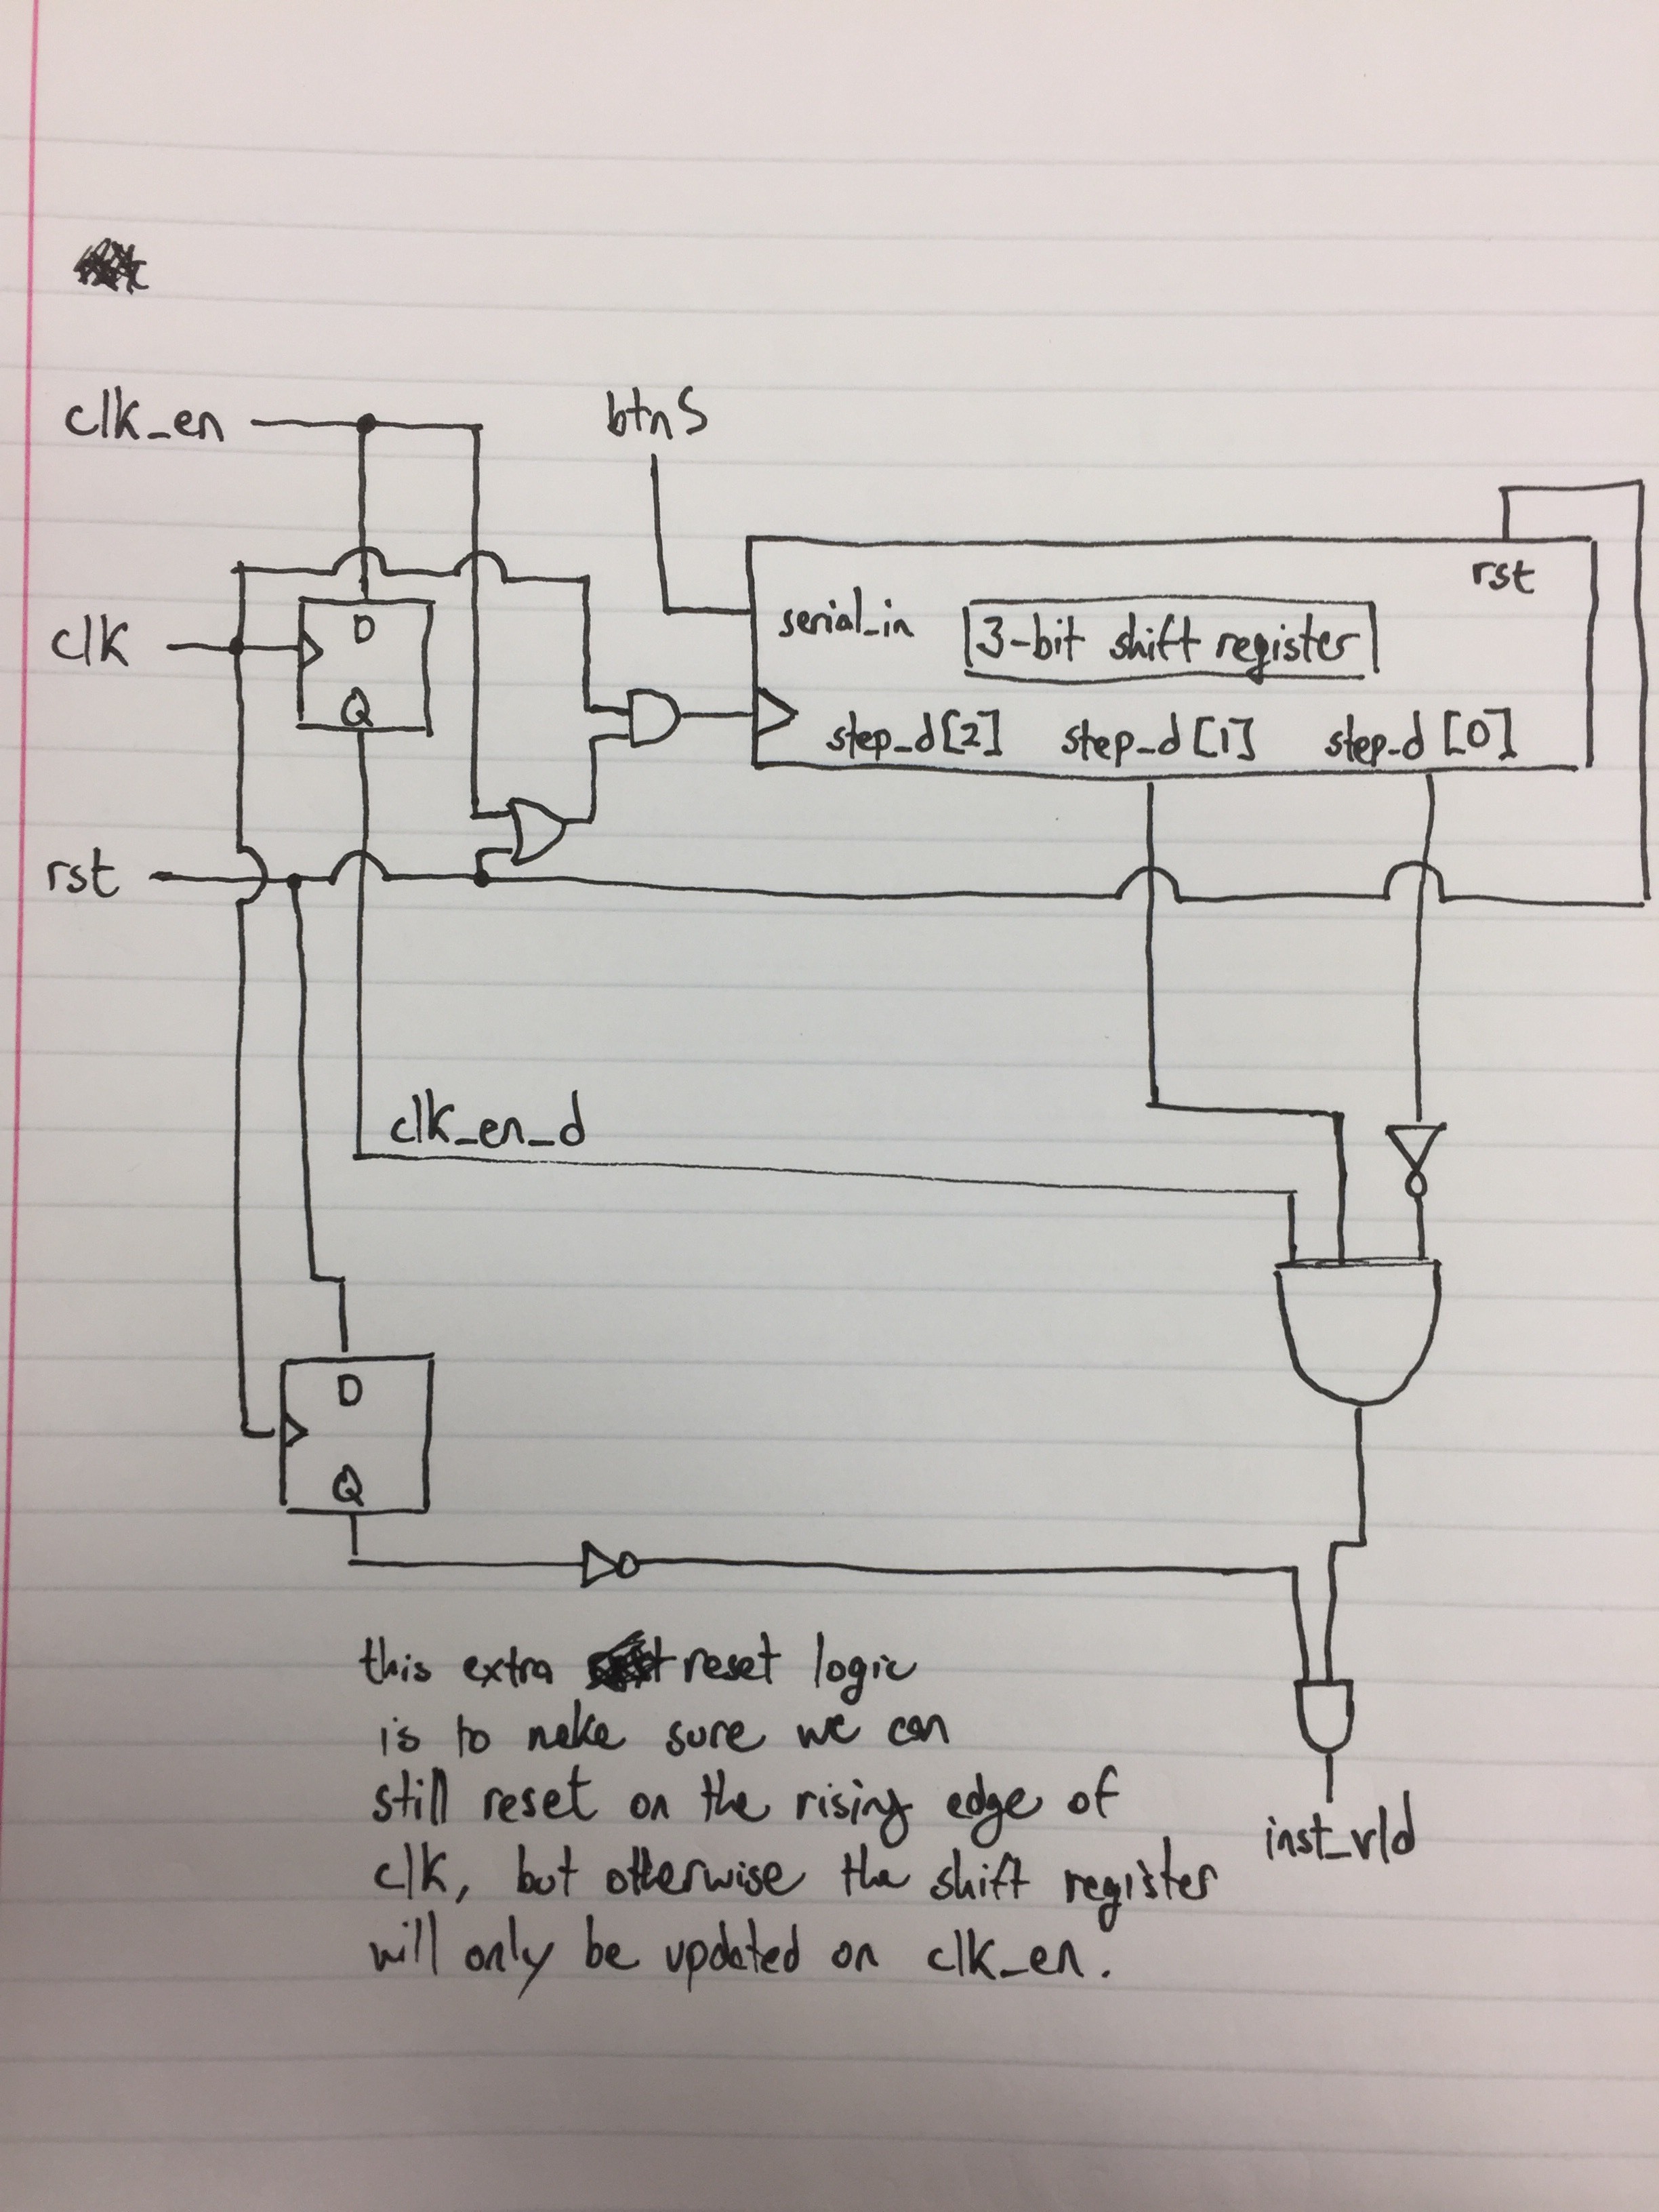 clk_en
btnS
rst
clk
D
serial_in
3-bit shift register
Q
step_d[2] step_d[1] step_d[0]
rst
clk_en_d
D
Q
this extra reset logic
is to make sure we can
still reset on the rising edge of
clk, but otherwise the shift register
will only be updated on clk_en.
inst_vld